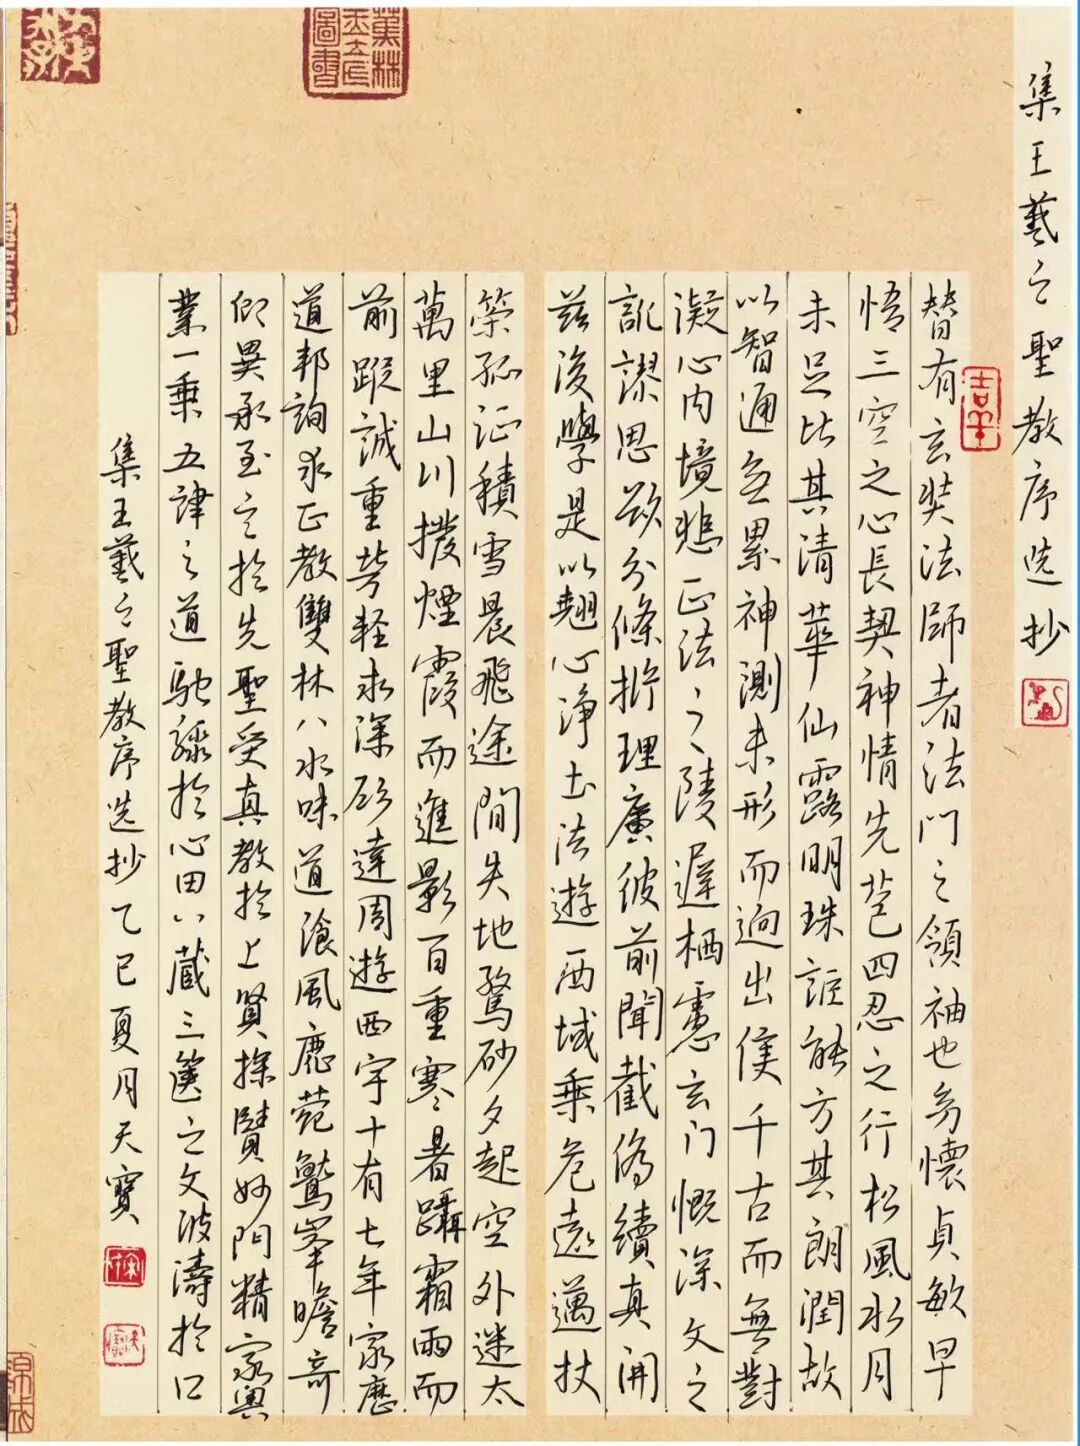 集王羲之聖教序选抄
替有玄奘法師者法門之領袖也幼懷貞敏早
悟三空之心長契神情先苞四忍之行松風水月
未足比其清華仙露明珠詎能方其朗潤故
以智通無累神測未形而迥出隻千古而無對
凝心内境悲正法之陵遲栖慮玄门慨深文之
訛謬思欲分條㭊理廣彼前聞截偽續真開
兹後學是以翹心淨土法遊西域乗危遠邁杖
策孤征積雪晨飛途間失地驚砂夕起空外迷太
萬里山川撥煙霞而進影百重寒暑躡霜雨而
前蹤誠重勞軽求深欲達周遊西宇十有七年窮歷
道邦詢求正教雙林八水味道湌風鹿菀鷲峯瞻奇
仰異承至言於先聖受真教於上賢探賾妙门精窮奧
業一乗五律之道馳驟於心田八蔵三篋之文波濤於口
集王羲之聖教序选抄乙巳夏月天寶
蕉林
玉立氏
圖書